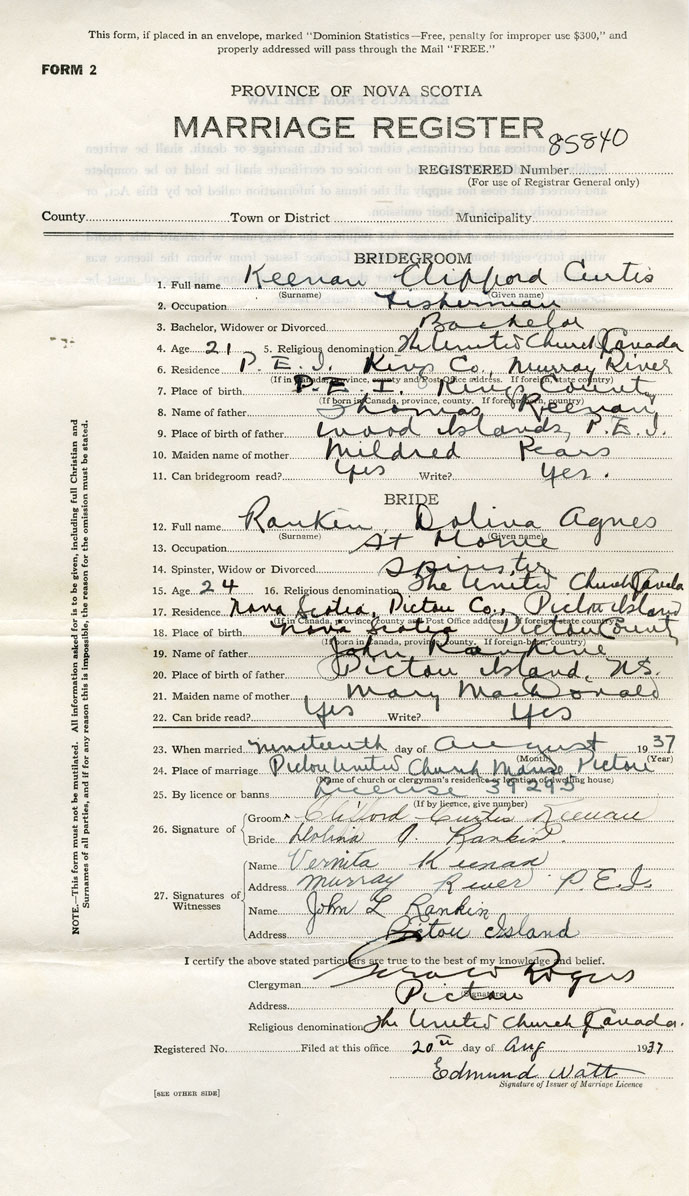 This form, if placed in an envelope, marked "Dominion Statistics—Free, penalty for improper use $300," and
properly addressed will pass through the Mail "FREE."
FORM 2
PROVINCE OF NOVA SCOTIA
MARRIAGE REGISTER
85840
REGISTERED Number
(For use of Registrar General only)
County Town or District Municipality
BRIDEGROOM
1. Full name Keenan Clifford Curtis
(Surname) (Given name)
2. Occupation Fisherman
3. Bachelor, Widower or Divorced Bachelor
4. Age 21 5. Religious denomination The United Church Canada
6. Residence P.E.I. Kings Co., Murray River
(If in Canada, province, county and Post Office address. If foreign, state country)
7. Place of birth P.E.I. Kings County
(If born in Canada, province, county. If foreign-born, country)
8. Name of father Thomas Keenan
9. Place of birth of father Wood Islands, P.E.I.
10. Maiden name of mother Mildred Pears
11. Can bridegroom read? Yes Write? Yes.
BRIDE
12. Full name Rankin Doliva Agnes
(Surname) (Given name)
13. Occupation At Home
14. Spinster, Widow or Divorced Spinster
15. Age 24 16. Religious denomination The United Church Canada
17. Residence Nova Scotia, Pictou Co., Pictou Island
(If in Canada, province, county and Post Office address. If foreign state country)
18. Place of birth Nova Scotia Pictou County
(If born in Canada, province, county. If foreign-born, country)
19. Name of father John Rankine
20. Place of birth of father Pictou Island, N.S.
21. Maiden name of mother Mary MacDonald
22. Can bride read? Yes Write? Yes
23. When married nineteenth day of August 1937
(Month) (Year)
24. Place of marriage Pictou United Church Manse, Pictou
(Name of church or clergyman's residence or location of dwelling house)
25. By licence or banns License 39295
(If by licence, give number)
26. Signature of Groom Clifford Curtis Keenan
Bride A. Rankin.
27. Signatures of Witnesses
Name Vernita Keenan
Address Murray River P.E.I.
Name John L Rankin
Address Pictou Island
I certify the above stated particulars are true to the best of my knowledge and belief.
Clergyman Rogers
(Signature)
Address Pictou
Religious denomination The United Church Canada.
Registered No. Filed at this office 20th day of Aug 1937
Edmund Watt
Signature of Issuer of Marriage Licence
[SEE OTHER SIDE]
NOTE.—This form must not be mutilated. All information asked for is to be given, including full Christian and
Surnames of all parties, and if for any reason this is impossible, the reason for the omission must be stated.